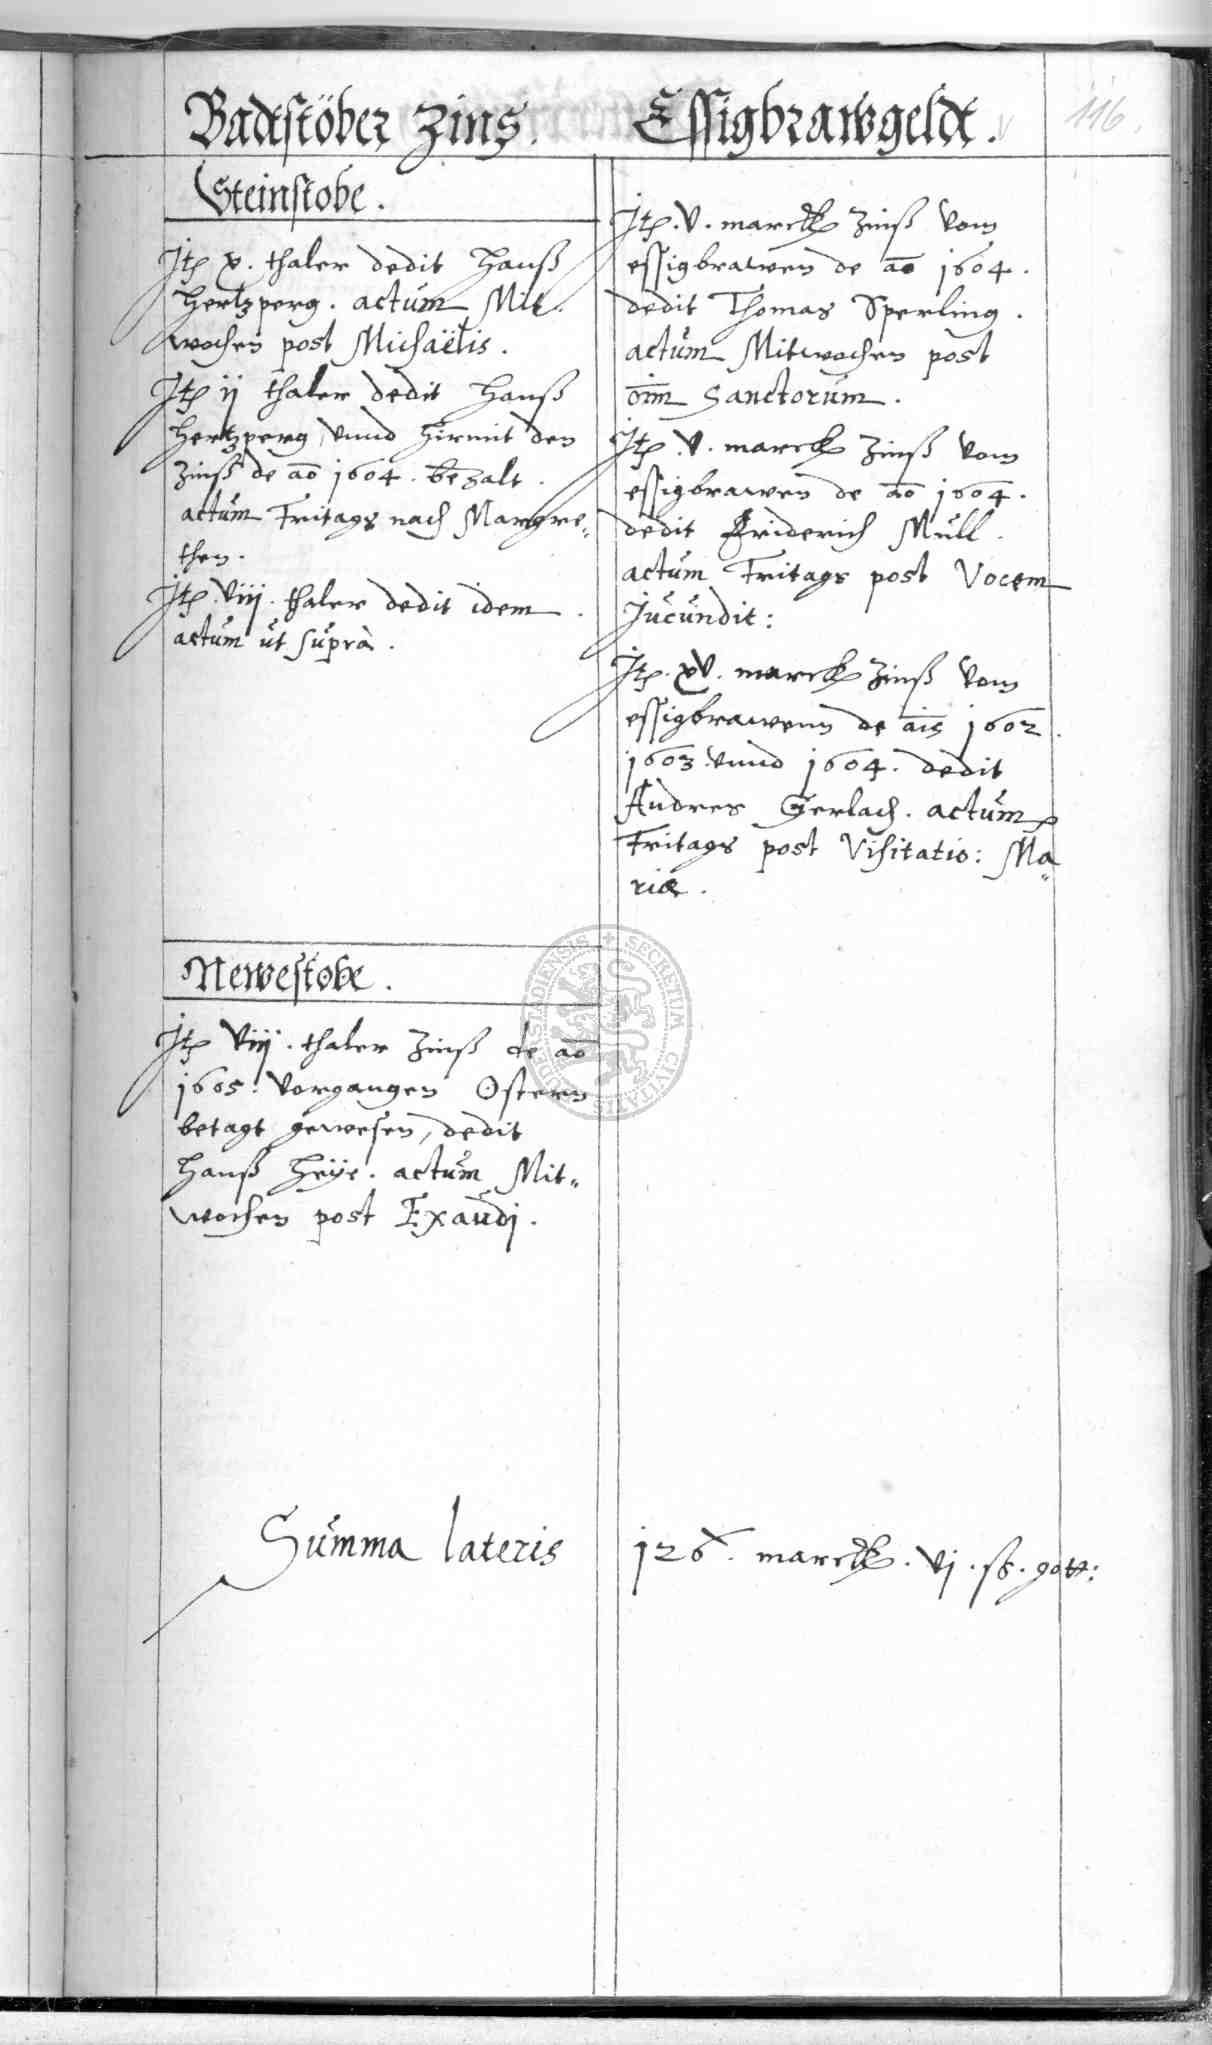 Badtstöber Zins.
Steinstobe.
Itp v. thaler dedit Hanß
Hertzperg. actum Mit¬
wochen post Michaëlis.
Itp ij thaler dedit Hanß
Hertzperg, vnnd hirmit den
Zinß de ao 1604. bezalt.
actum Fritags nach Margre„
then.
Itp. viij. thaler dedit idem.
actum ut suprà.
Newestobe.
Itp viij. thaler Zinß de ao
1605. vorgangen Ostern
betagt gewesen, dedit
Hanß Heÿe. actum Mit„
wochen post Exaudj.
Essigbrawgeldt.
116.
Itp. v. marck Zinß vom
essigbrawen de ao 1604.
dedit Thomas Sperling.
actum Mitwochen post
oim Sanctorum.
Itp. v. marck Zinß vom
essigbrawen de ao 1604.
dedit Friderich Müll.
actum Fritags post Vocem
Jucundit:
Itp. xv. marck Zinß vom
essigbrawenn de ais 1602.
1603. vnnd 1604. dedit
Andres Gerlach. actum
Fritags post Visitatio: Ma„
riæ.
Summa lateris 126. marck. vj. ß. gott:
SECRETUM CIVITATIS DUDERSTADIENSIS